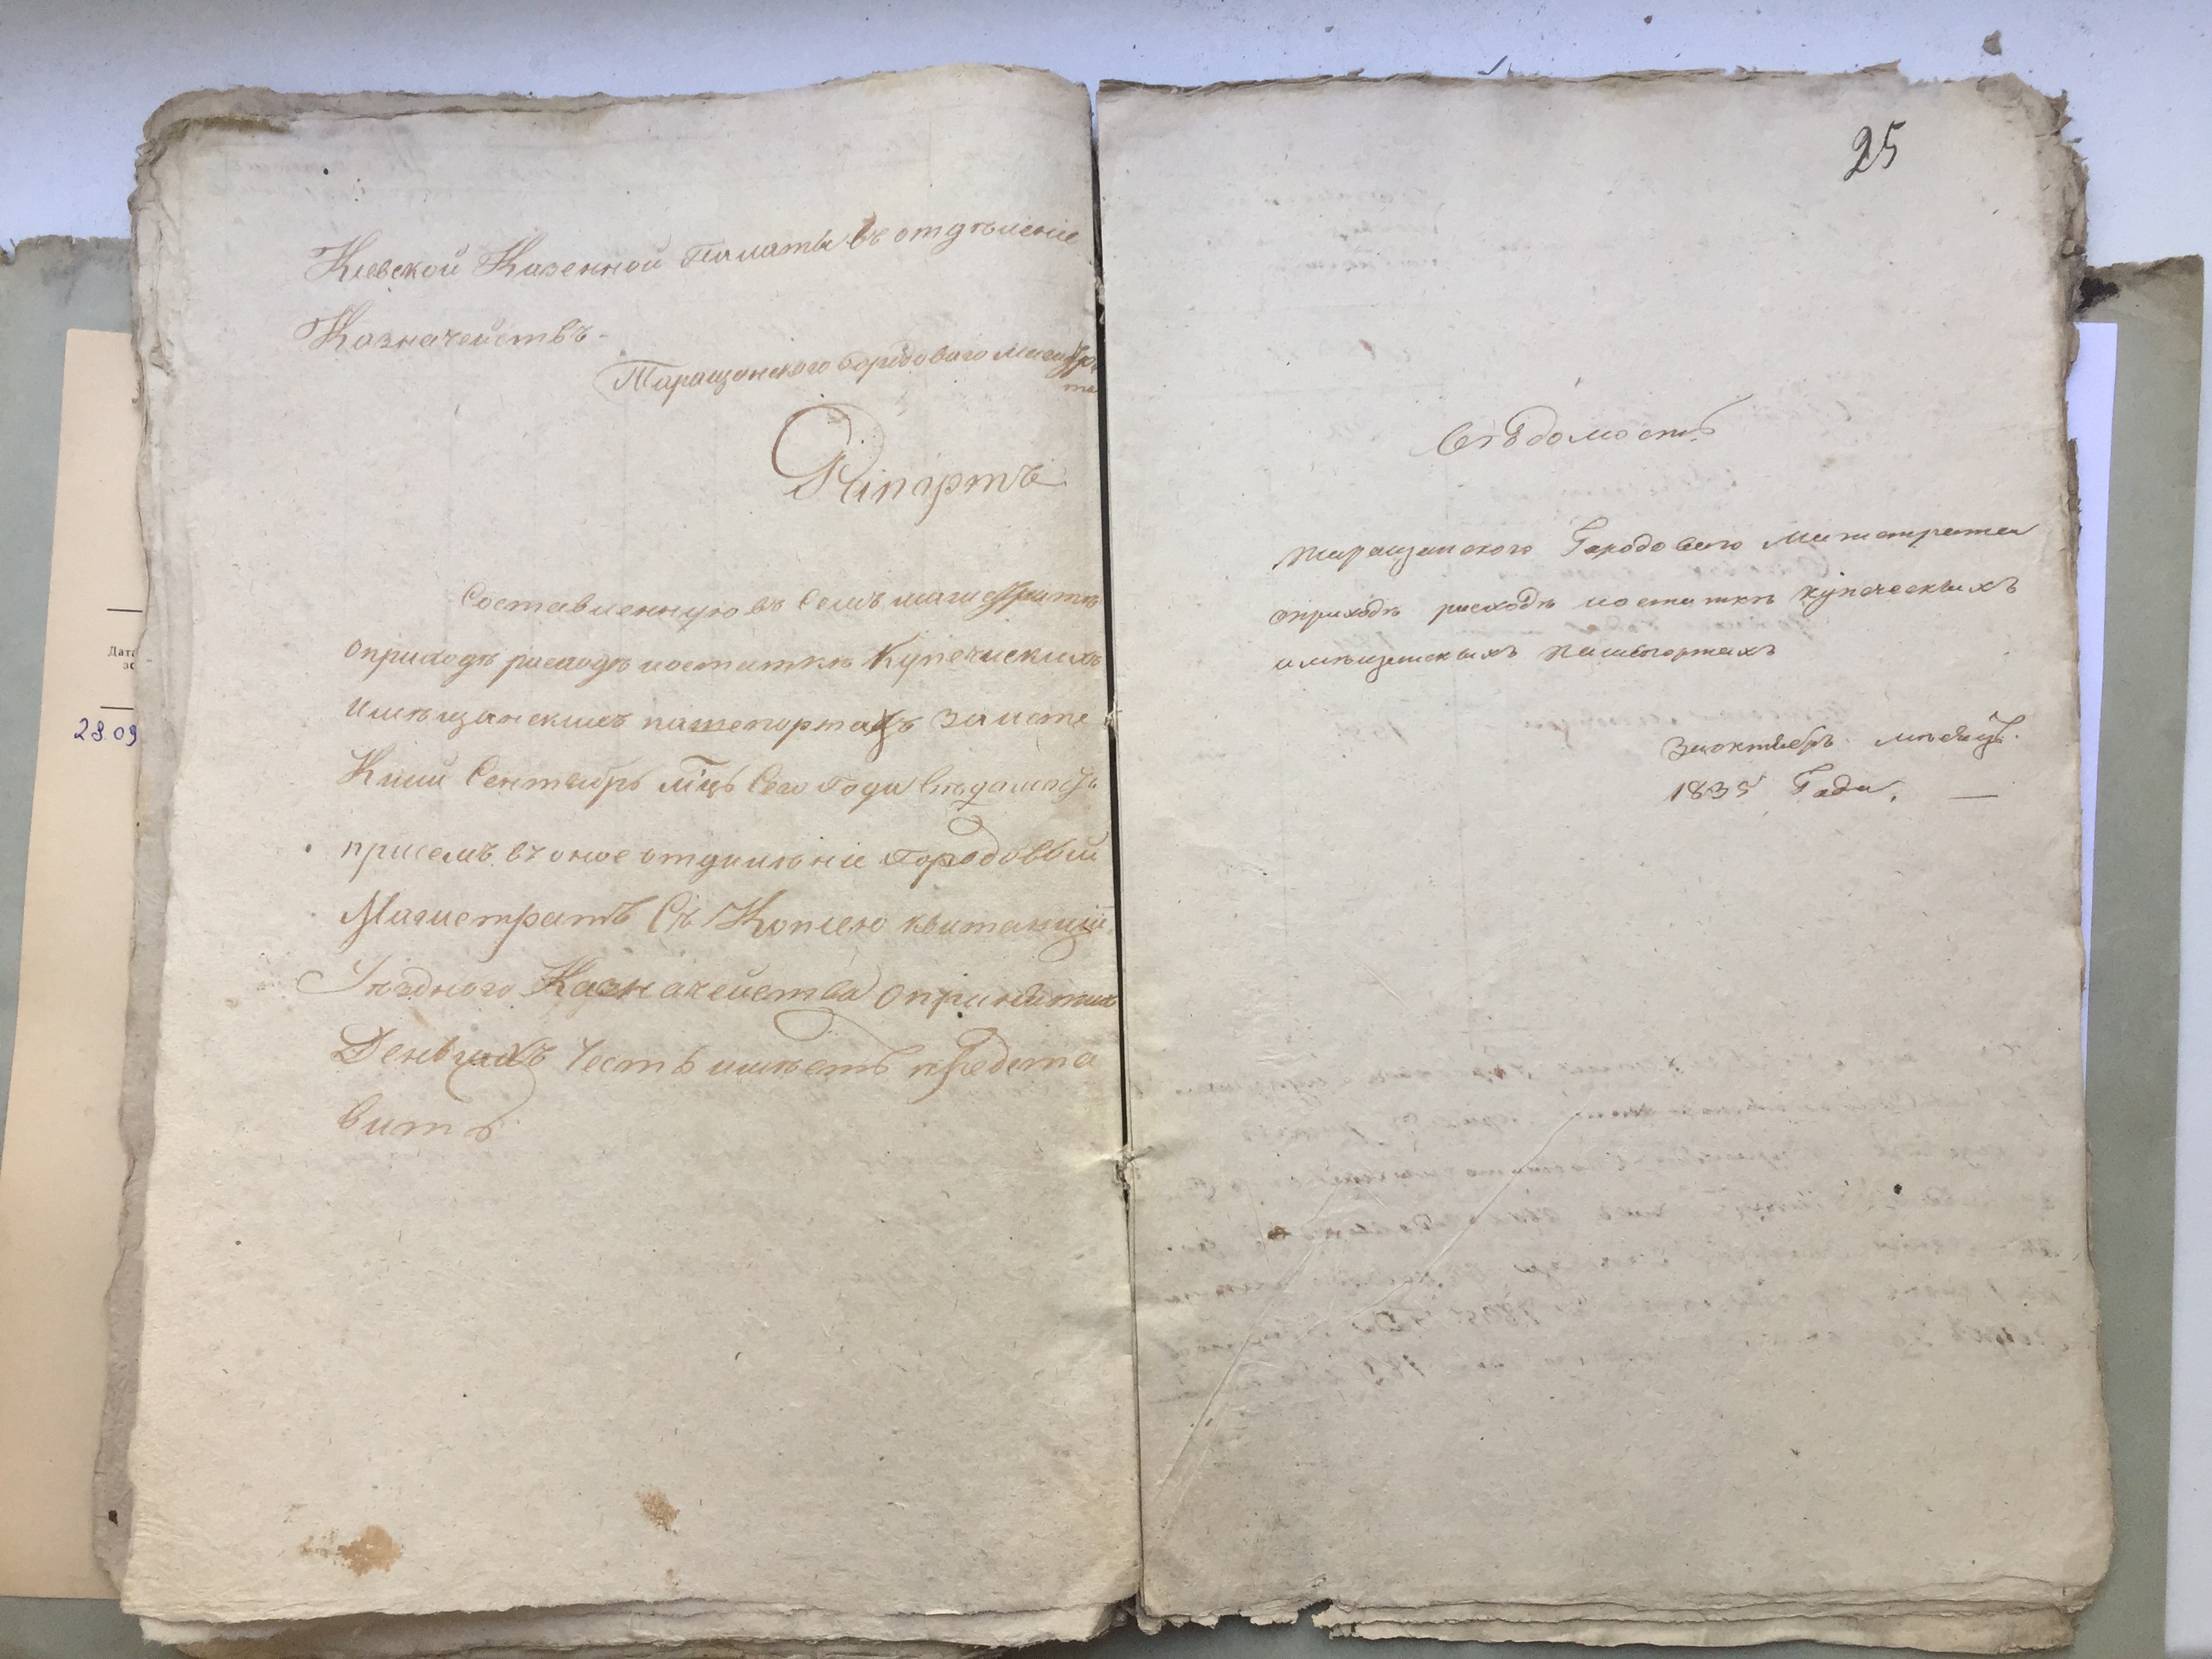 Кіевской Казенной Палаты въ отдѣленіе
Казначействъ
Таращанского Городоваго Магистра
та
Рапортъ
Составленную въ Семъ магистратѣ
оприходѣ расходѣ иостаткѣ Купеческихъ
имѣщанскихъ пашепортахъ заисте
Кшій Сентябрь мцъ Сего Года вѣдомость
присемъ въ оное отдѣленіе Городовый
Магистратъ Съ Копіею квитанціи
Уѣздного Казначейства опринятых
Деньгахъ Честь имѣетъ предста
вить
25
Вѣдомость
Таращанского Городового Магистрата
оприходѣ расходѣ иостаткѣ купеческыхъ
имѣщанскыхъ пашпортахъ
Заоктябрь мѣсяцъ.
1835 Года. —
Дата
28.09